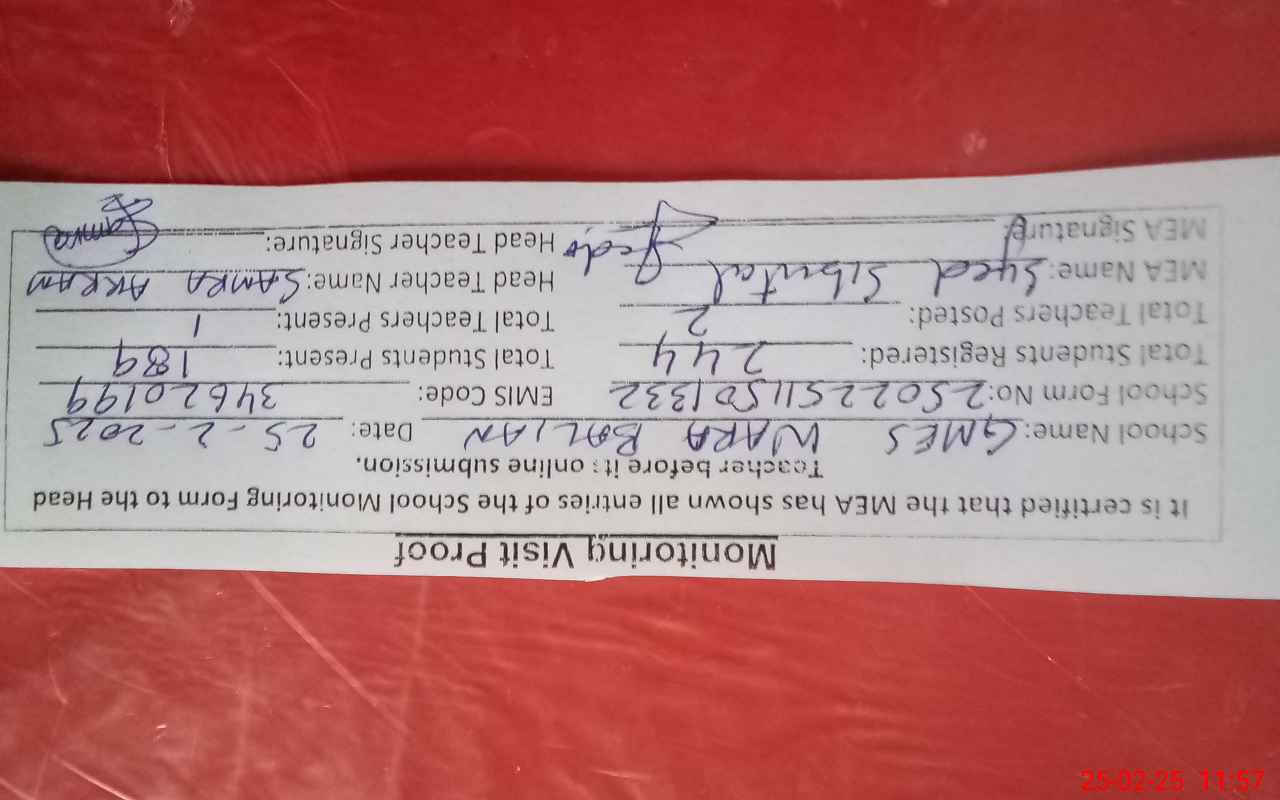 Monitoring Visit Proof
It is certified that the MEA has shown all entries of the School Monitoring Form to the Head
Teacher before its online submission.
School Name: GMES WARA BALIAN Date: 25-2-2025
School Form No: 25022511501332 EMIS Code: 34620199
Total Students Registered: 244 Total Students Present: 189
Total Teachers Posted: 2 Total Teachers Present: 1
MEA Name: Syed Sibtal Head Teacher Name: SAMRA AKRAM
MEA Signature: Head Teacher Signature: Samra
25-02-25 11:57